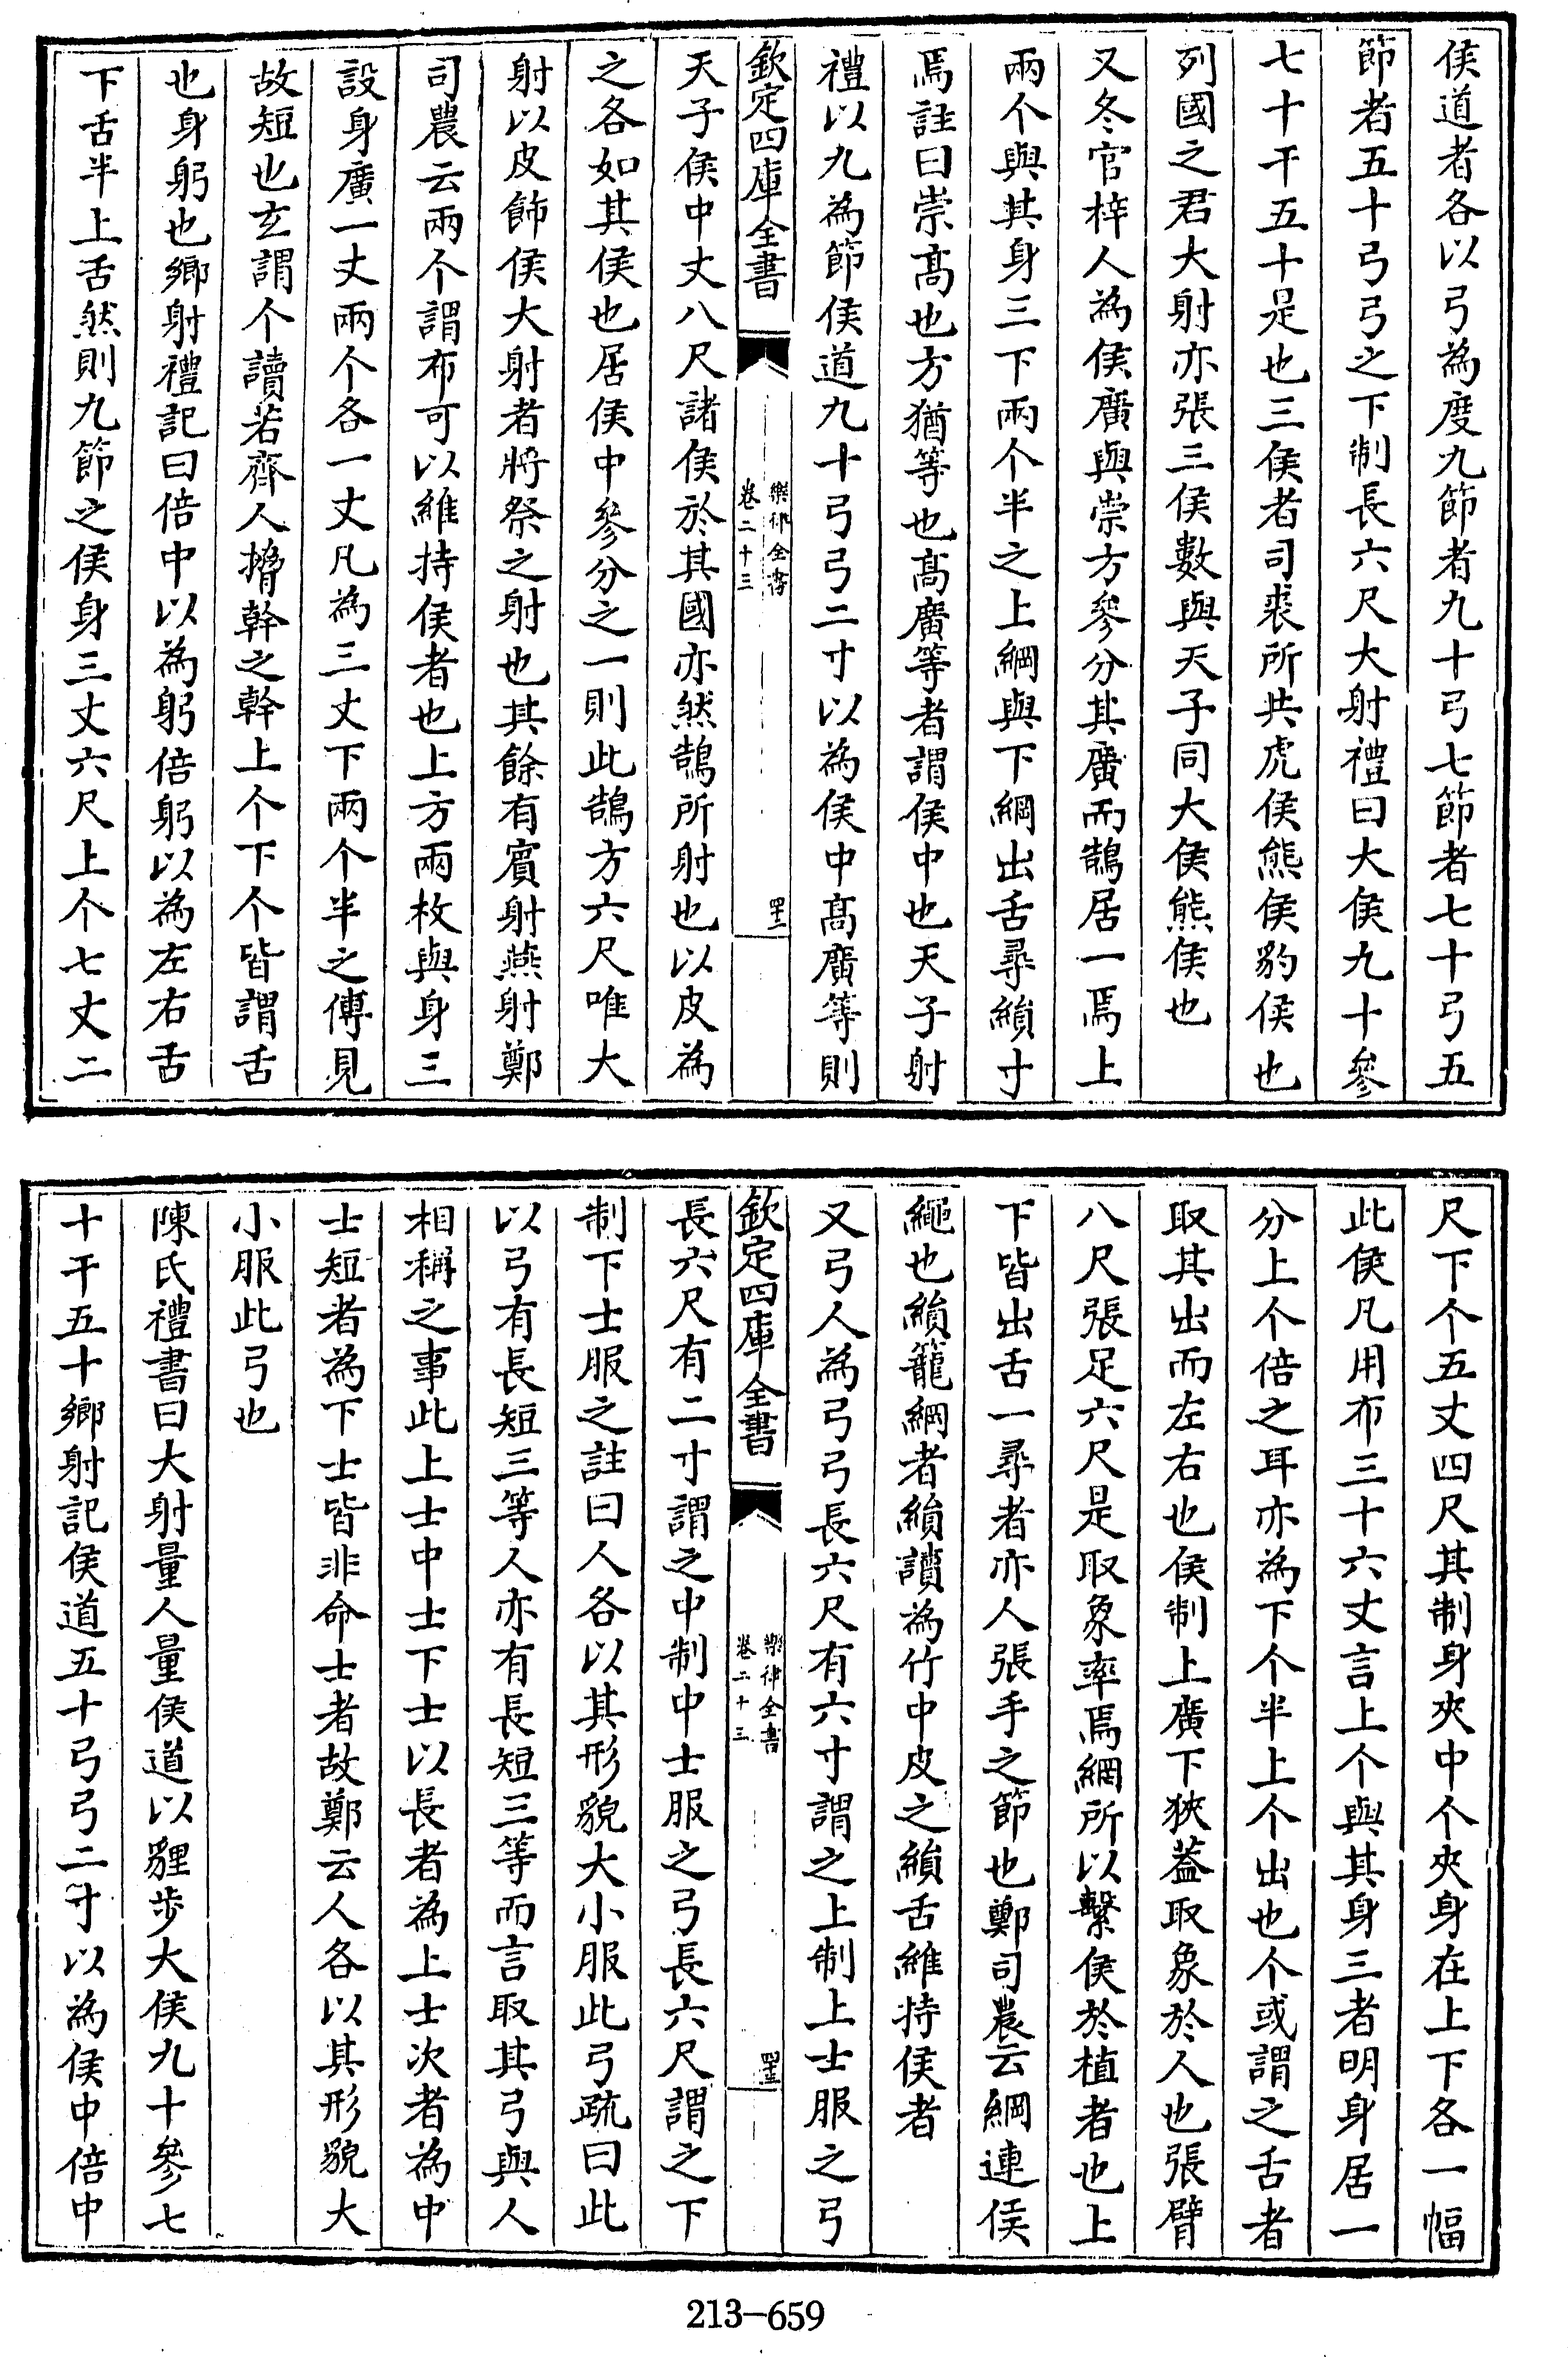 侯道者各以弓為度九節者九十弓七節者七十弓五
節者五十弓弓之下制長六尺大射禮曰大侯九十參
七十干五十是也三侯者司裘所共虎侯熊侯豹侯也
列國之君大射亦張三侯數與天子同大侯熊侯也
又冬官梓人為侯廣與崇方參分其廣而鵠居一焉上
兩个與其身三下兩个半之上綱與下綱出舌尋縜寸
焉註曰崇髙也方猶等也髙廣等者謂侯中也天子射
禮以九為節侯道九十弓弓二寸以為侯中髙廣等則
欽定四庫全書
樂律全書
卷二十三
天子侯中丈八尺諸侯於其國亦然鵠所射也以皮為
之各如其侯也居侯中參分之一則此鵠方六尺唯大
射以皮飾侯大射者將祭之射也其餘有賓射燕射鄭
司農云兩个謂布可以維持侯者也上方兩枚與身三
設身廣一丈兩个各一丈凡為三丈下兩个半之傅見
故短也玄謂个讀若齊人搚幹之幹上个下个皆謂舌
也身躬也鄉射禮記曰倍中以為躬倍躬以為左右舌
下舌半上舌然則九節之侯身三丈六尺上个七丈二
尺下个五丈四尺其制身夾中个夾身在上下各一幅
此侯凡用布三十六丈言上个與其身三者明身居一
分上个倍之耳亦為下个半上个出也个或謂之舌者
取其出而左右也侯制上廣下狹葢取象於人也張臂
八尺張足六尺是取象率焉綱所以繫侯於植者也上
下皆出舌一尋者亦人張手之節也鄭司農云綱連侯
繩也縜籠綱者縜讀為竹中皮之縜舌維持侯者
又弓人為弓弓長六尺有六寸謂之上制上士服之弓
欽定四庫全書
樂律全書
卷二十三
長六尺有二寸謂之中制中士服之弓長六尺謂之下
制下士服之註曰人各以其形貌大小服此弓疏曰此
以弓有長短三等人亦有長短三等而言取其弓與人
相稱之事此上士中士下士以長者為上士次者為中
士短者為下士皆非命士者故鄭云人各以其形貌大
小服此弓也
陳氏禮書曰大射量人量侯道以貍步大侯九十參七
十干五十鄉射記侯道五十弓弓二寸以為侯中倍中
213—659